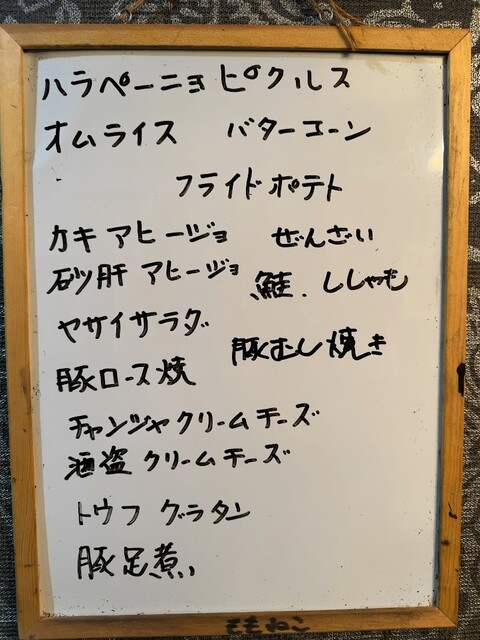 ハラペーニョピクルス
オムライス バターコーン
フライドポテト
カキアヒージョ ぜんざい
砂肝アヒージョ 鮭.ししゃも
ヤサイサラダ
豚むし焼き
豚ロース焼
チャンジャクリームチーズ
酒盗クリームチーズ
トウフグラタン
豚足煮
ももねこ